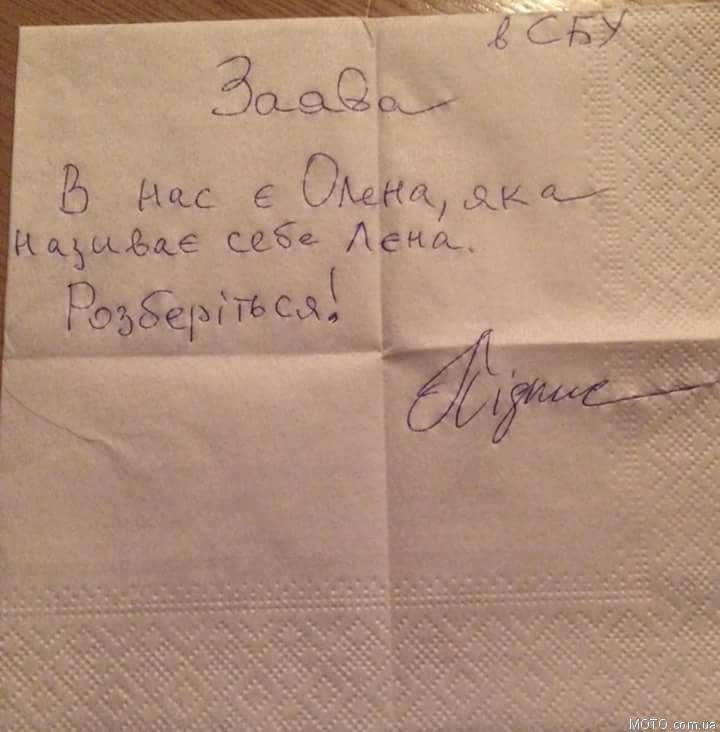 в СБУ
Заява
В нас є Олена, яка
називає себе Лєна.
Розберіться!
Підпис
MOTO.com.ua